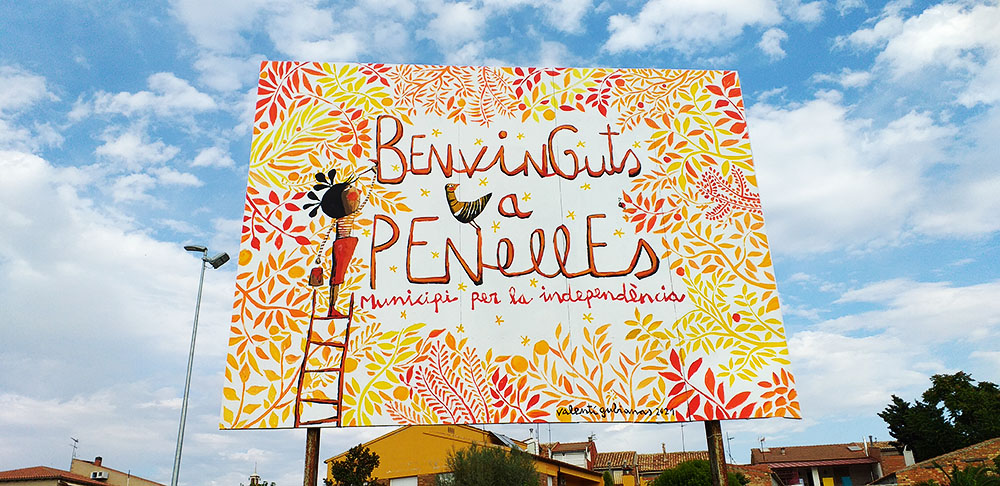 BENVINGUTS
a
PENellES
Municipi per la independència
valentí gubianas 2021